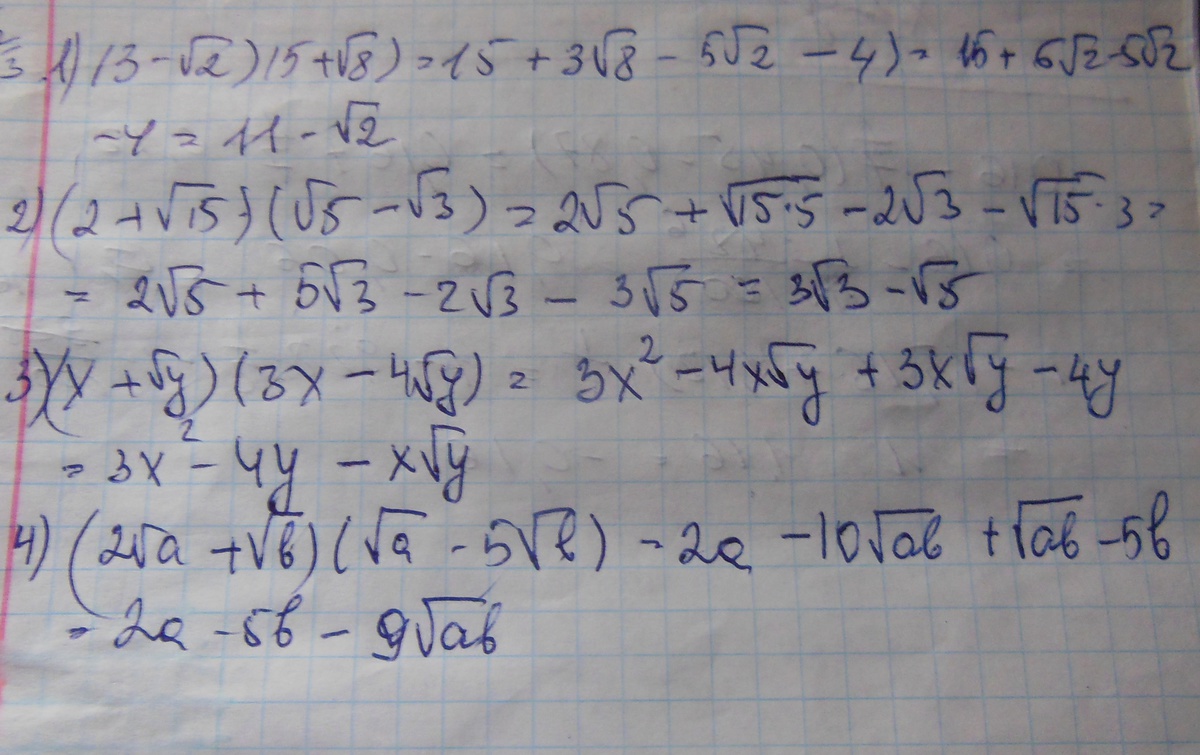 1) (3 - √2)(5 + √8) = 15 + 3√8 - 5√2 - 4) = 15 + 6√2 - 5√2
- 4 = 11 - √2
2) (2 + √15)(√5 - √3) = 2√5 + √15·5 - 2√3 - √15·3 =
= 2√5 + 5√3 - 2√3 - 3√5 = 3√3 - √5
3) (x + √y)(3x - 4√y) = 3x² - 4x√y + 3x√y - 4y
= 3x² - 4y - x√y
4) (2√a + √b)(√a - 5√b) = 2a - 10√ab + √ab - 5b
= 2a - 5b - 9√ab